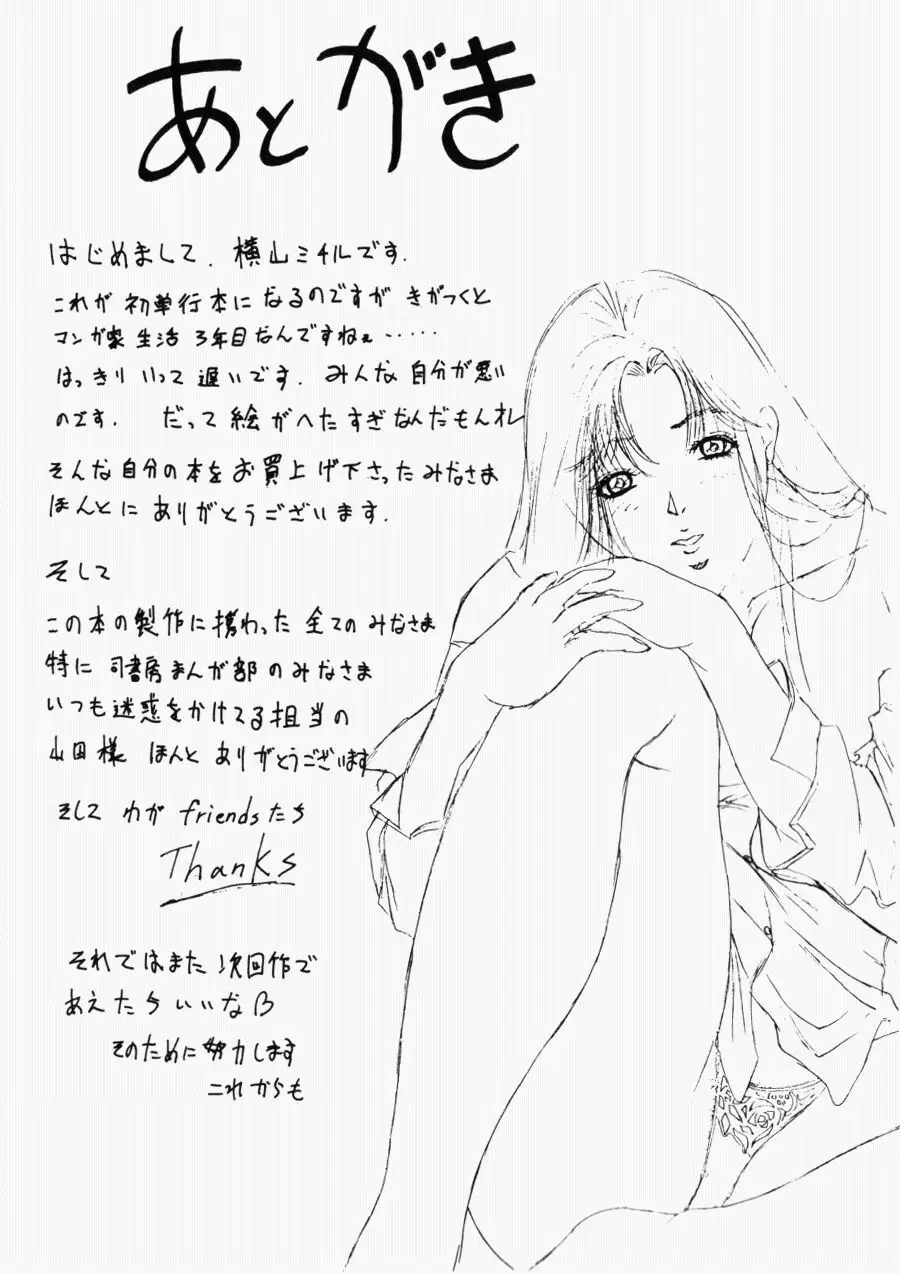 あとがき
はじめまして、横山ミチルです.
これが 初単行本に なるのですが きがつくと
マンガ家 生活 3年目なんですねぇ……
はっきり いって 遅いです. みんな 自分が悪い
のです. だって 絵 がへた すぎ なんだもんオレ
そんな自分の本を お買上げ下さった みなさま
ほんとに ありがとうございます.
そして
この本の製作に携わった 全ての みなさま
特に 司書房まんが部 の みなさま
いつも迷惑をかけてる 担当の
山田様 ほんと ありがとうございます
そして わが friendsたち
Thanks
それではまた 次回作で
あえたら いいな
そのために 努力します
これからも